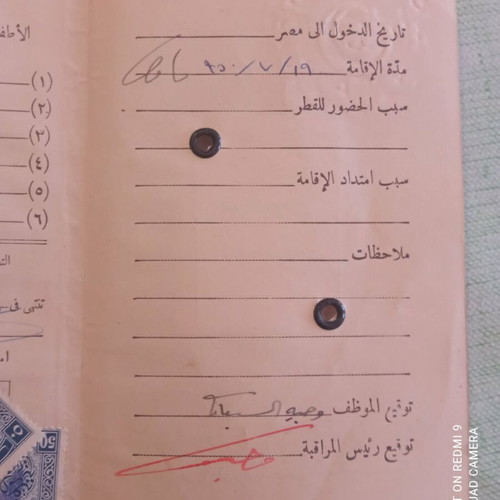 تاريخ الدخول الى مصر
مدّة الإقامة ١٩/٧/٩٥٠
سبب الحضور للقطر
سبب امتداد الإقامة
ملاحظات
توقيع الموظف
توقيع رئيس المراقبة
الأطفا
(١)
(٢)
(٣)
(٤)
(٥)
(٦)
تنتهى فى
T ON REDMI 9
UAD CAMERA